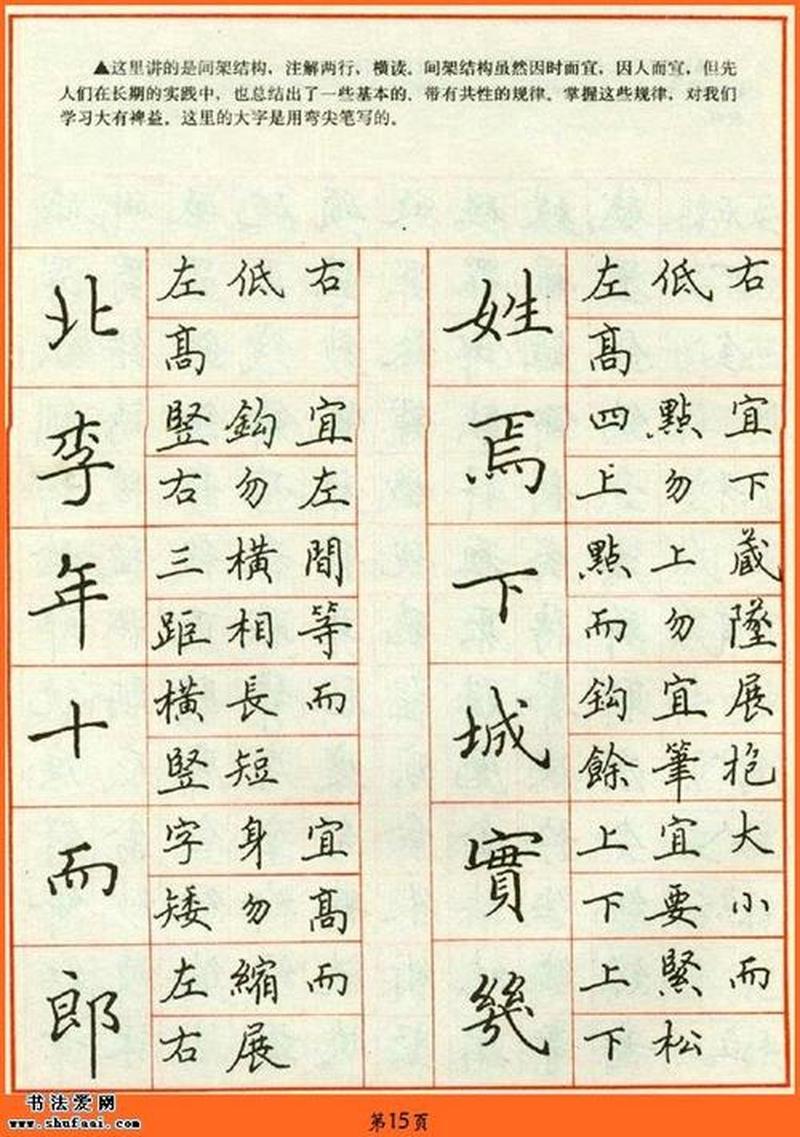 ▲这里讲的是间架结构，注解两行，横读。间架结构虽然因时而宜，因人而宜，但先
人们在长期的实践中，也总结出了一些基本的、带有共性的规律。掌握这些规律，对我们
学习大有裨益。这里的大字是用弯尖笔写的。
北
左低右
高
李
竖鈎宜
右勿左
年
三橫間
距相等
十
橫長而
竖短
而
字身宜
矮勿高
郎
左縮而
右展
姓
左低右
高
焉
四點宜
上勿下
下
點上藏
而勿墜
城
鈎宜展
餘筆抱
實
上宜大
下要小
幾
上緊而
下松
书法爱网
www.shufaai.com
第15頁